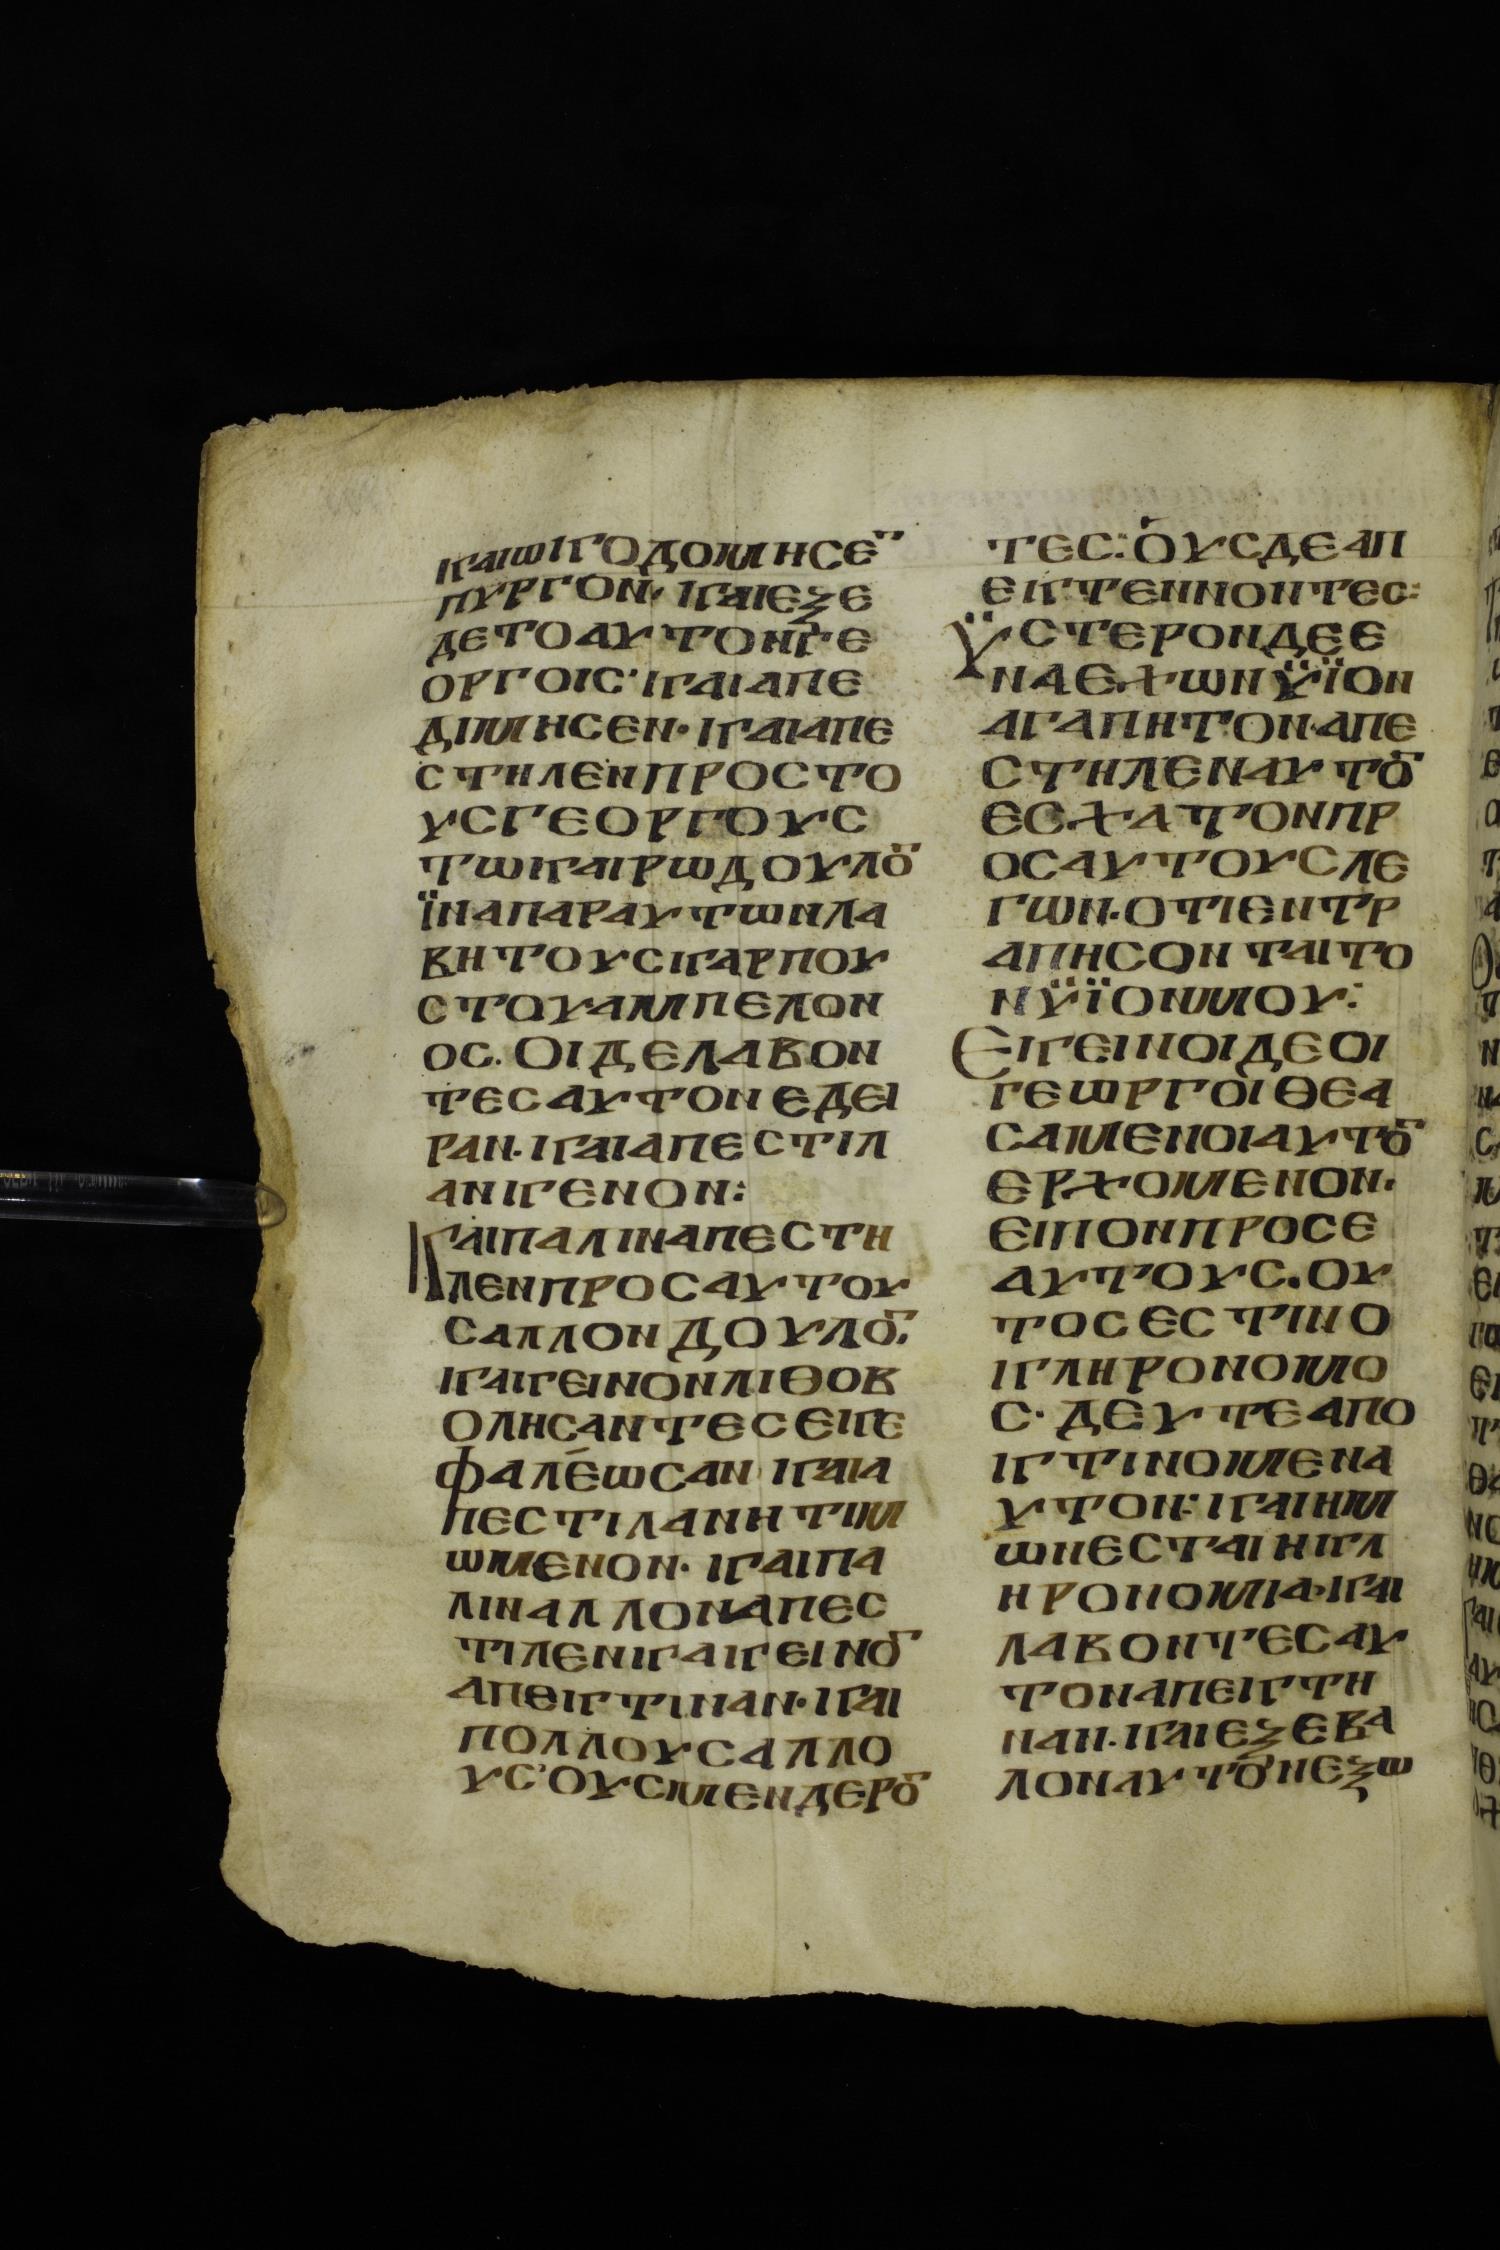 ΚΑΙΩΚΟΔΟΜΗCΕ̅
ΠΥΡΓΟΝ· ΚΑΙΕΞΕ
ΔΕΤΟΑΥΤΟΝΓ·Ε
ΟΡΓΟΙC·ΚΑΙΑΠΕ
ΔΙΜΗCΕΝ·ΚΑΙΑΠΕ
CΤΗΛΕΝΠΡΟCΤΟ
ΥCΓΕΟΡΓΟΥC
ΤΩΚΑΙΡΩΔΟΥΛΟ̅
ΪΝΑΠΑΡΑΥΤΩΝΛΑ
ΒΗΤΟΥCΚΑΡΠΟΥ
CΤΟΥΑΜΠΕΛΟΝ
ΟC. ΟΙΔΕΛΑΒΟΝ
ΤΕCΑΥΤΟΝΕΔΕΙ
ΡΑΝ·ΚΑΙΑΠΕCΤΙΛ
ΑΝΚΕΝΟΝ:
ΚΑΙΠΑΛΙΝΑΠΕCΤΗ
ΛΕΝΠΡΟCΑΥΤΟΥ
CΑΛΛΟΝΔΟΥΛΟ̅.
ΚΑΙΓΕΙΝΟΝΛΙΘΟΒ
ΟΛΗCΑΝΤΕCΕΚΕ
ΦΑΛΕΩCΑΝ ΚΑΙΑ
ΠΕCΤΙΛΑΝΗΤΙΜ
ΩΜΕΝΟΝ· ΚΑΙΠΑ
ΛΙΝΑΛΛΟΝΑΠΕC
ΤΙΛΕΝΚΑΙΓΕΙΝΟ̅
ΑΠΕΚΤΙΝΑΝ·ΚΑΙ
ΠΟΛΛΟΥCΑΛΛΟ
ΥC·ΟΥCΜΕΝΔΕΡΟ̅
ΤΕC:ΟΥCΔΕΑΠ
ΕΚΤΕΝΝΟΝΤΕC:
ΫCΤΕΡΟΝΔΕΕ
ΝΑΕΧΩΝΫΪΟΝ
ΑΓΑΠΗΤΟΝ·ΑΠΕ
CΤΗΛΕΝΑΥΤΟ̅
ΕCΧΑΤΟΝΠΡ
ΟCΑΥΤΟΥCΛΕ
ΓΩΝ·ΟΤΙΕΝΤΡ
ΑΠΗCΟΝΤΑΙΤΟ
ΝΫΪΟΝΜΟΥ:
ΕΚΕΙΝΟΙΔΕΟΙ
ΓΕΩΡΓΟΙΘΕΑ
CΑΜΕΝΟΙΑΥΤΟ̅
ΕΡΧΟΜΕΝΟΝ.
ΕΙΠΟΝΠΡΟCΕ
ΑΥΤΟΥC.ΟΥ
ΤΟCΕCΤΙΝΟ
ΚΛΗΡΟΝΟΜΟ
C· ΔΕΥΤΕΑΠΟ
ΚΤΙΝΟΜΕΝΑ
ΥΤΟΝ:ΚΑΙΗΜ
ΩΝΕCΤΑΙΗΚΛ
ΗΡΟΝΟΜΙΑ·ΚΑΙ
ΛΑΒΟΝΤΕCΑΥ
ΤΟΝΑΠΕΚΤΗ
ΝΑΝ·ΚΑΙΕΞΕΒΑ
ΛΟΝΑΥΤΟΝΕΞΩ